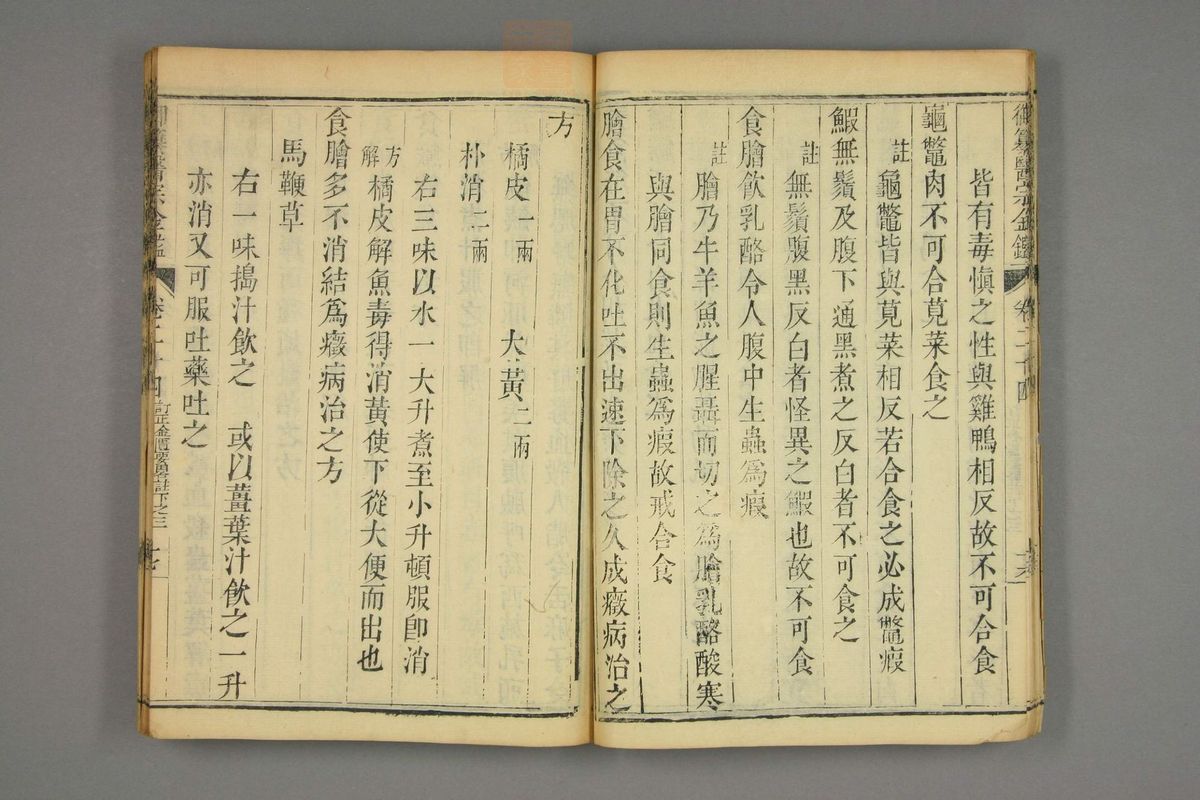 御纂醫宗金鑑 卷二十四
皆有毒愼之性與雞鴨相反故不可合食
龜鼈肉不可合莧菜食之
註 龜鼈皆與莧菜相反若合食之必成鼈瘕
鰕無鬚及腹下通黑煮之反白者不可食之
註 無鬚腹黑反白者怪異之鰕也故不可食
食膾飮乳酪令人腹中生蟲爲瘕
註 膾乃牛羊魚之腥聶而切之爲膾乳酪酸寒
與膾同食則生蟲爲瘕故戒合食
膾食在胃不化吐不出速下除之久成癥病治之
方
橘皮一兩 大黃二兩
朴消二兩
右三味以水一大升煮至小升頓服卽消
方解 橘皮解魚毒得消黃使下從大便而出也
食膾多不消結爲癥病治之方
馬鞭草
右一味搗汁飮之 或以薑葉汁飮之一升
亦消又可服吐藥吐之
御纂醫宗金鑑 卷二十四 訂正金匱要畧註下之三